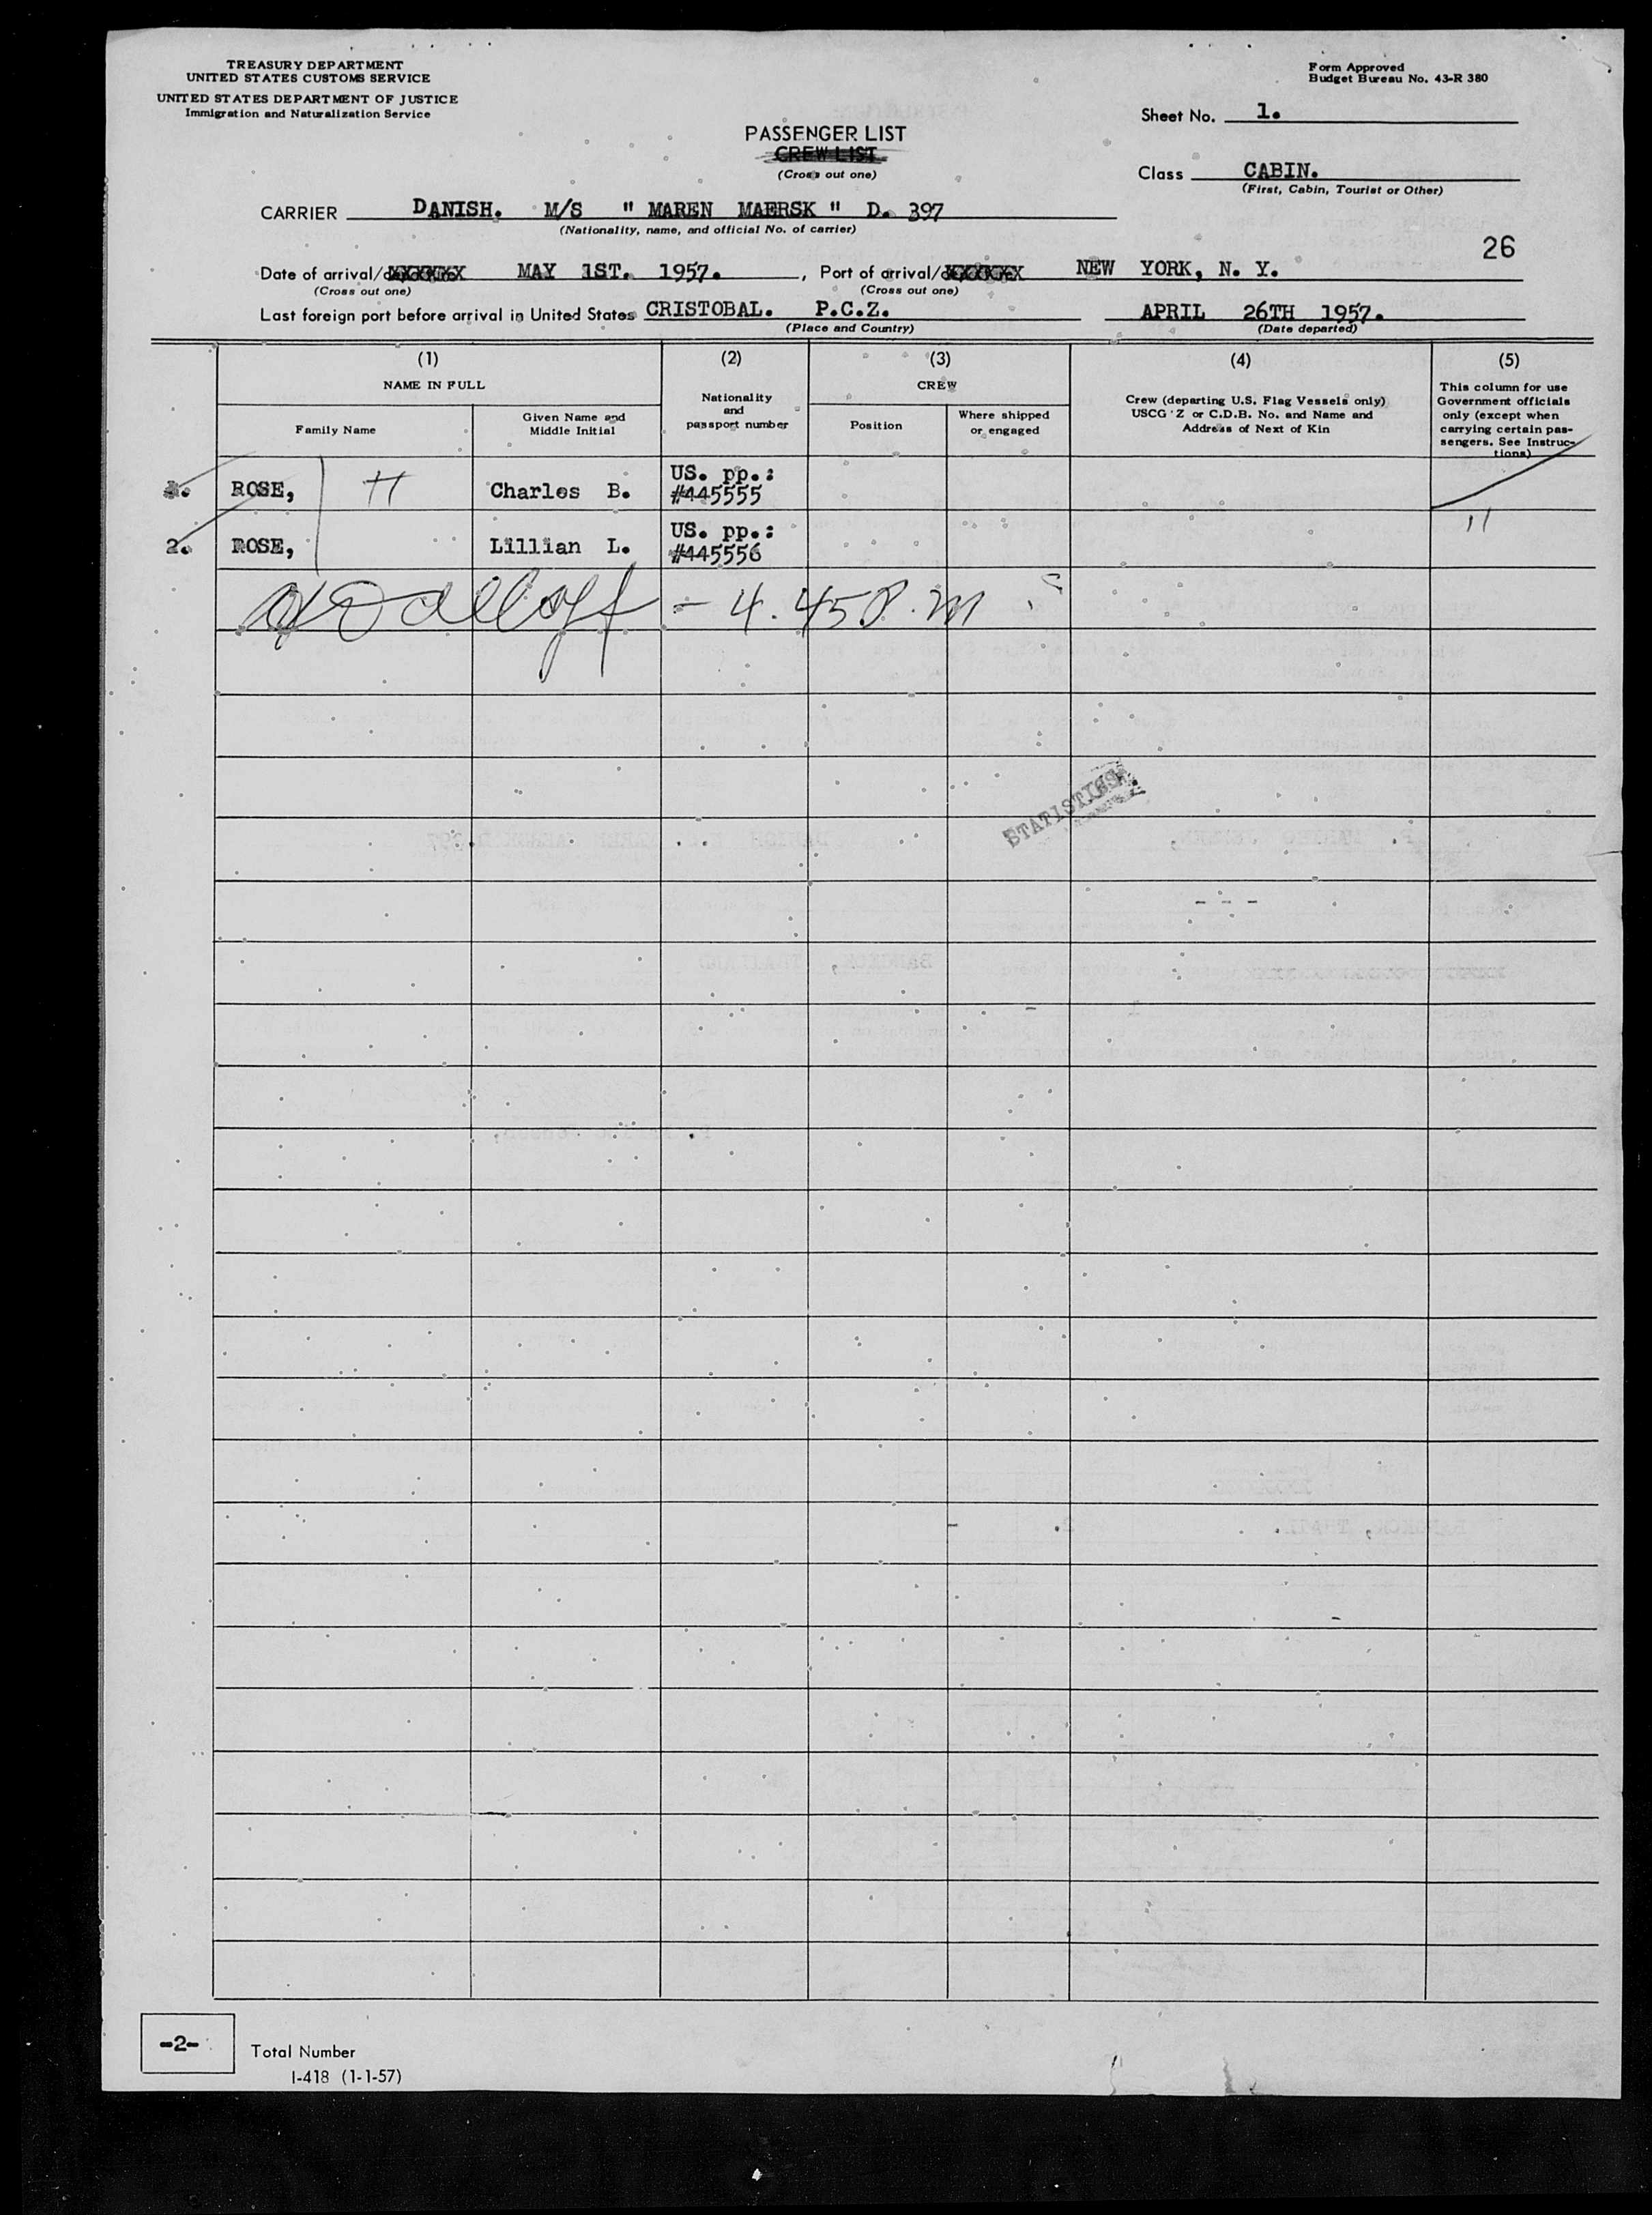 TREASURY DEPARTMENT
UNITED STATES CUSTOMS SERVICE
UNITED STATES DEPARTMENT OF JUSTICE
Immigration and Naturalization Service
Form Approved
Budget Bureau No. 43-R 380
Sheet No. 1.
PASSENGER LIST
CREW LIST
(Cross out one)
Class CABIN.
(First, Cabin, Tourist or Other)
CARRIER DANISH. M/S " MAREN MAERSK " D. 397
(Nationality, name, and official No. of carrier)
26
Date of arrival/ MAY 1ST. 1957. , Port of arrival/ NEW YORK, N. Y.
(Cross out one) (Cross out one)
Last foreign port before arrival in United States CRISTOBAL. P.C.Z. APRIL 26TH 1957.
(Place and Country) (Date departed)
(1) (2) (3) (4) (5)
NAME IN FULL
Family Name
Given Name and
Middle Initial
Nationality
and
passport number
CREW
Position
Where shipped
or engaged
Crew (departing U.S. Flag Vessels only)
USCG Z or C.D.B. No. and Name and
Address of Next of Kin
This column for use
Government officials
only (except when
carrying certain pas-
sengers. See Instruc-
tions)
1. ROSE, H Charles B. US. pp.:
#445555
2. ROSE, Lillian L. US. pp.:
#445556
"
all off - 4.45 P.M.
STATISTICS
- - -
-2-
Total Number
I-418 (1-1-57)